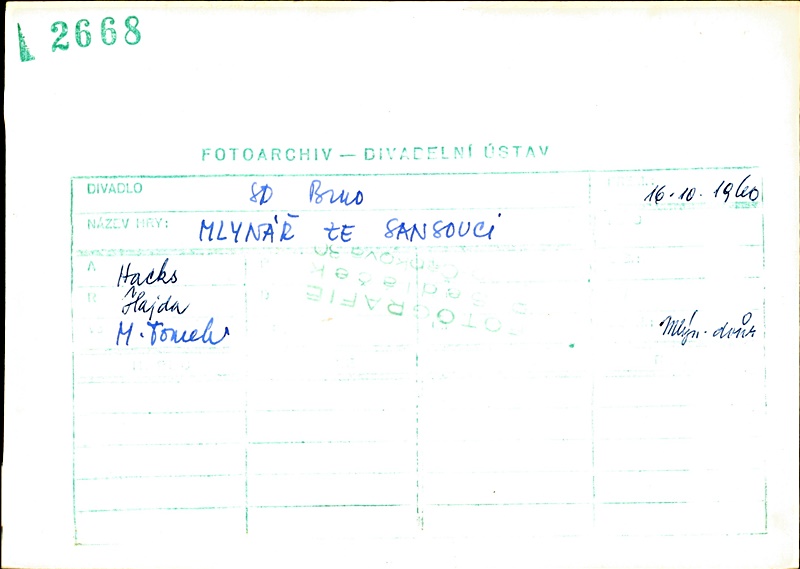 2668
FOTOARCHIV — DIVADELNÍ ÚSTAV
DIVADLO SD Brno 16.10.1960
NÁZEV HRY: MLYNÁŘ ZE SANSOUCI
A Hacks
R Hajda
M. Tomek Mlýn. dvůr
FOTOGRAFIE